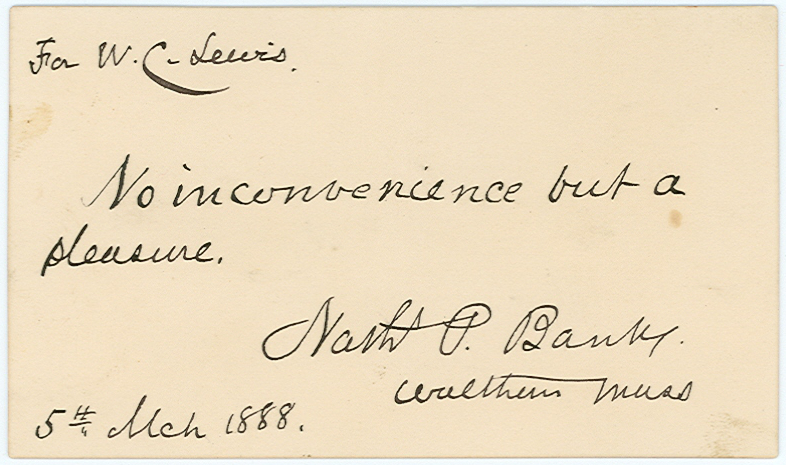 For W. C. Lewis.
No inconvenience but a
pleasure.
Nathl P. Banks.
Waltham Mass
5th Mch 1888.